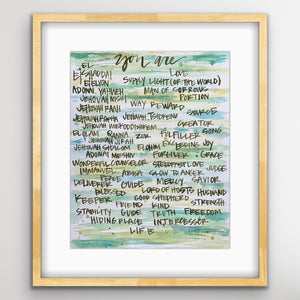 you are
EL
EL SHADDAI LOVE
EL ELYON SUPPLY LIGHT (OF THE WORLD)
ADONAI YAHWEH MAN OF SORROWS
JEHOVAH NISSI PORTION
JEHOVAH RAAH WAY REWARD
JEHOVAH RAPHA JEHOVAH TSIDKENU SOURCE
JEHOVAH MEKODDISHKEM CREATOR
EL OLAM QANNA ZUR FULFILLER
JEHOVAH JIREH
JEHOVAH SHALOM ELOHIM BEGINS JOY
ADONAI MESHIV FORGIVER GRACE
WONDERFUL COUNSELOR STEADFAST LOVE JUDGE
IMMANUEL ABBA SLOW TO ANGER
PEACE
DELIVERER GUIDE MERCY SAVIOR
BLESSED LORD OF HOSTS HUSBAND
KEEPER GOOD SHEPHERD
FRIEND KIND STRENGTH
STABILITY GUIDE TRUTH FREEDOM
HIDING PLACE INTERCESSOR
LIFE